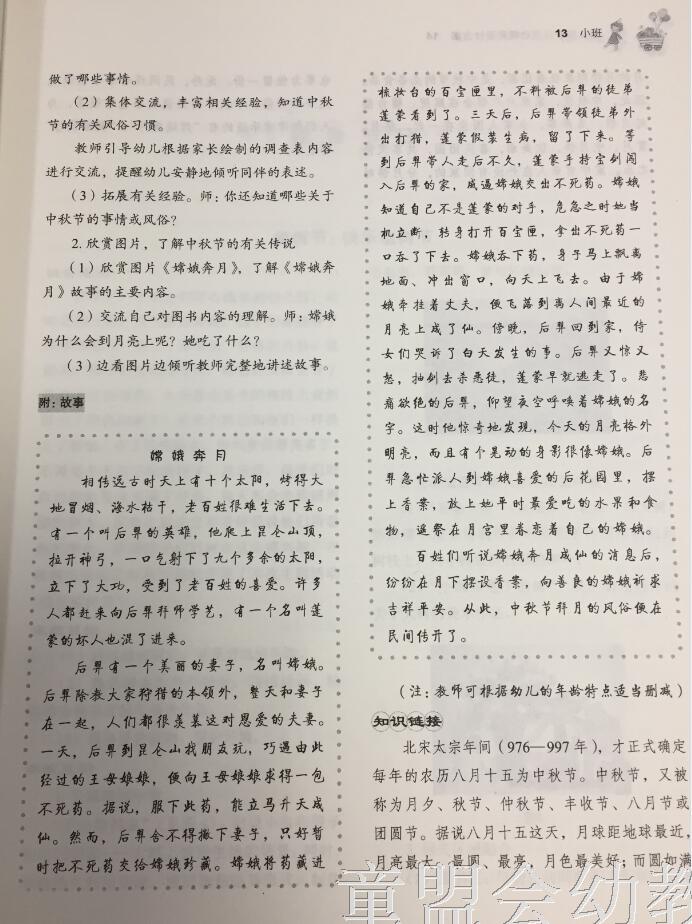 13 小班
做了哪些事情。
（2）集体交流，丰富相关经验，知道中秋
节的有关风俗习惯。
教师引导幼儿根据家长绘制的调查表内容
进行交流，提醒幼儿安静地倾听同伴的表述。
（3）拓展有关经验。师：你还知道哪些关于
中秋节的事情或风俗？
2. 欣赏图片，了解中秋节的有关传说
（1）欣赏图片《嫦娥奔月》，了解《嫦娥奔
月》故事的主要内容。
（2）交流自己对图书内容的理解。师：嫦娥
为什么会到月亮上呢？她吃了什么？
（3）边看图片边倾听教师完整地讲述故事。
附：故事
嫦娥奔月
相传远古时天上有十个太阳，烤得大
地冒烟、海水枯干，老百姓很难生活下去。
有一个叫后羿的英雄，他爬上昆仑山顶，
拉开神弓，一口气射下了九个多余的太阳，
立下了大功，受到了老百姓的喜爱。许多
人都赶来向后羿拜师学艺，有一个名叫蓬
蒙的坏人也混了进来。
后羿有一个美丽的妻子，名叫嫦娥。
后羿除教大家狩猎的本领外，整天和妻子
在一起，人们都很羡慕这对恩爱的夫妻。
一天，后羿到昆仑山找朋友玩，巧遇由此
经过的王母娘娘，便向王母娘娘求得一包
不死药。据说，服下此药，能立马升天成
仙。然而，后羿舍不得撇下妻子，只好暂
时把不死药交给嫦娥珍藏。嫦娥将药藏进
梳妆台的百宝匣里，不料被后羿的徒弟
蓬蒙看到了。三天后，后羿带领徒弟外
出打猎，蓬蒙假装生病，留了下来。等
到后羿带人走后不久，蓬蒙手持宝剑闯
入后羿的家，威逼嫦娥交出不死药。嫦娥
知道自己不是蓬蒙的对手，危急之时她当
机立断，转身打开百宝匣，拿出不死药一
口吞了下去。嫦娥吞下药，身子马上飘离
地面、冲出窗口，向天上飞去。由于嫦
娥牵挂着丈夫，便飞落到离人间最近的
月亮上成了仙。傍晚，后羿回到家，侍
女们哭诉了白天发生的事。后羿又惊又
怒，抽剑去杀恶徒，蓬蒙早就逃走了。悲
痛欲绝的后羿，仰望夜空呼唤着嫦娥的名
字。这时他惊奇地发现，今天的月亮格外
明亮，而且有个晃动的身影很像嫦娥。后
羿急忙派人到嫦娥喜爱的后花园里，摆
上香案，放上她平时最爱吃的水果和食
物，遥祭在月宫里眷恋着自己的嫦娥。
百姓们听说嫦娥奔月成仙的消息后，
纷纷在月下摆设香案，向善良的嫦娥祈求
吉祥平安。从此，中秋节拜月的风俗便在
民间传开了。
（注：教师可根据幼儿的年龄特点适当删减）
知识链接
北宋太宗年间（976—997年），才正式确定
每年的农历八月十五为中秋节。中秋节，又被
称为月夕、秋节、仲秋节、丰收节、八月节或
团圆节。据说八月十五这天，月球距地球最近，
月亮最大、最圆、最亮，月色最美好；而圆如满
童盟会幼教